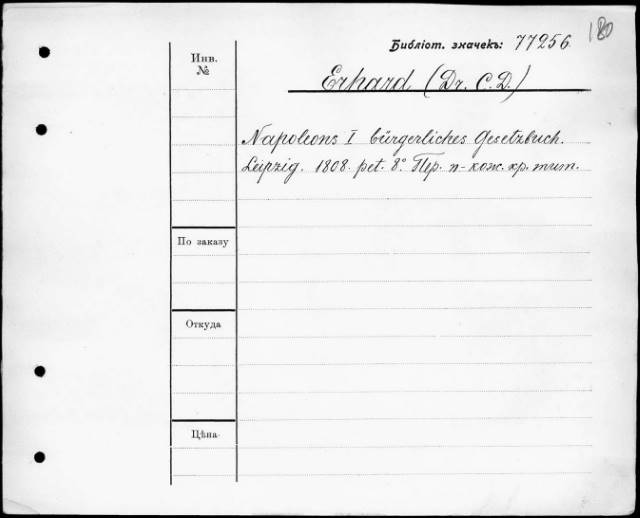 180
Библіот. значекъ: 77256
Инв.
№
Erhard (Dr. C. D.)
Napoleons I bürgerliches Gesetzbuch.
Leipzig. 1808. pet. 8°. Пер. п-кож. кр. тит.
По заказу
Откуда
Цѣна